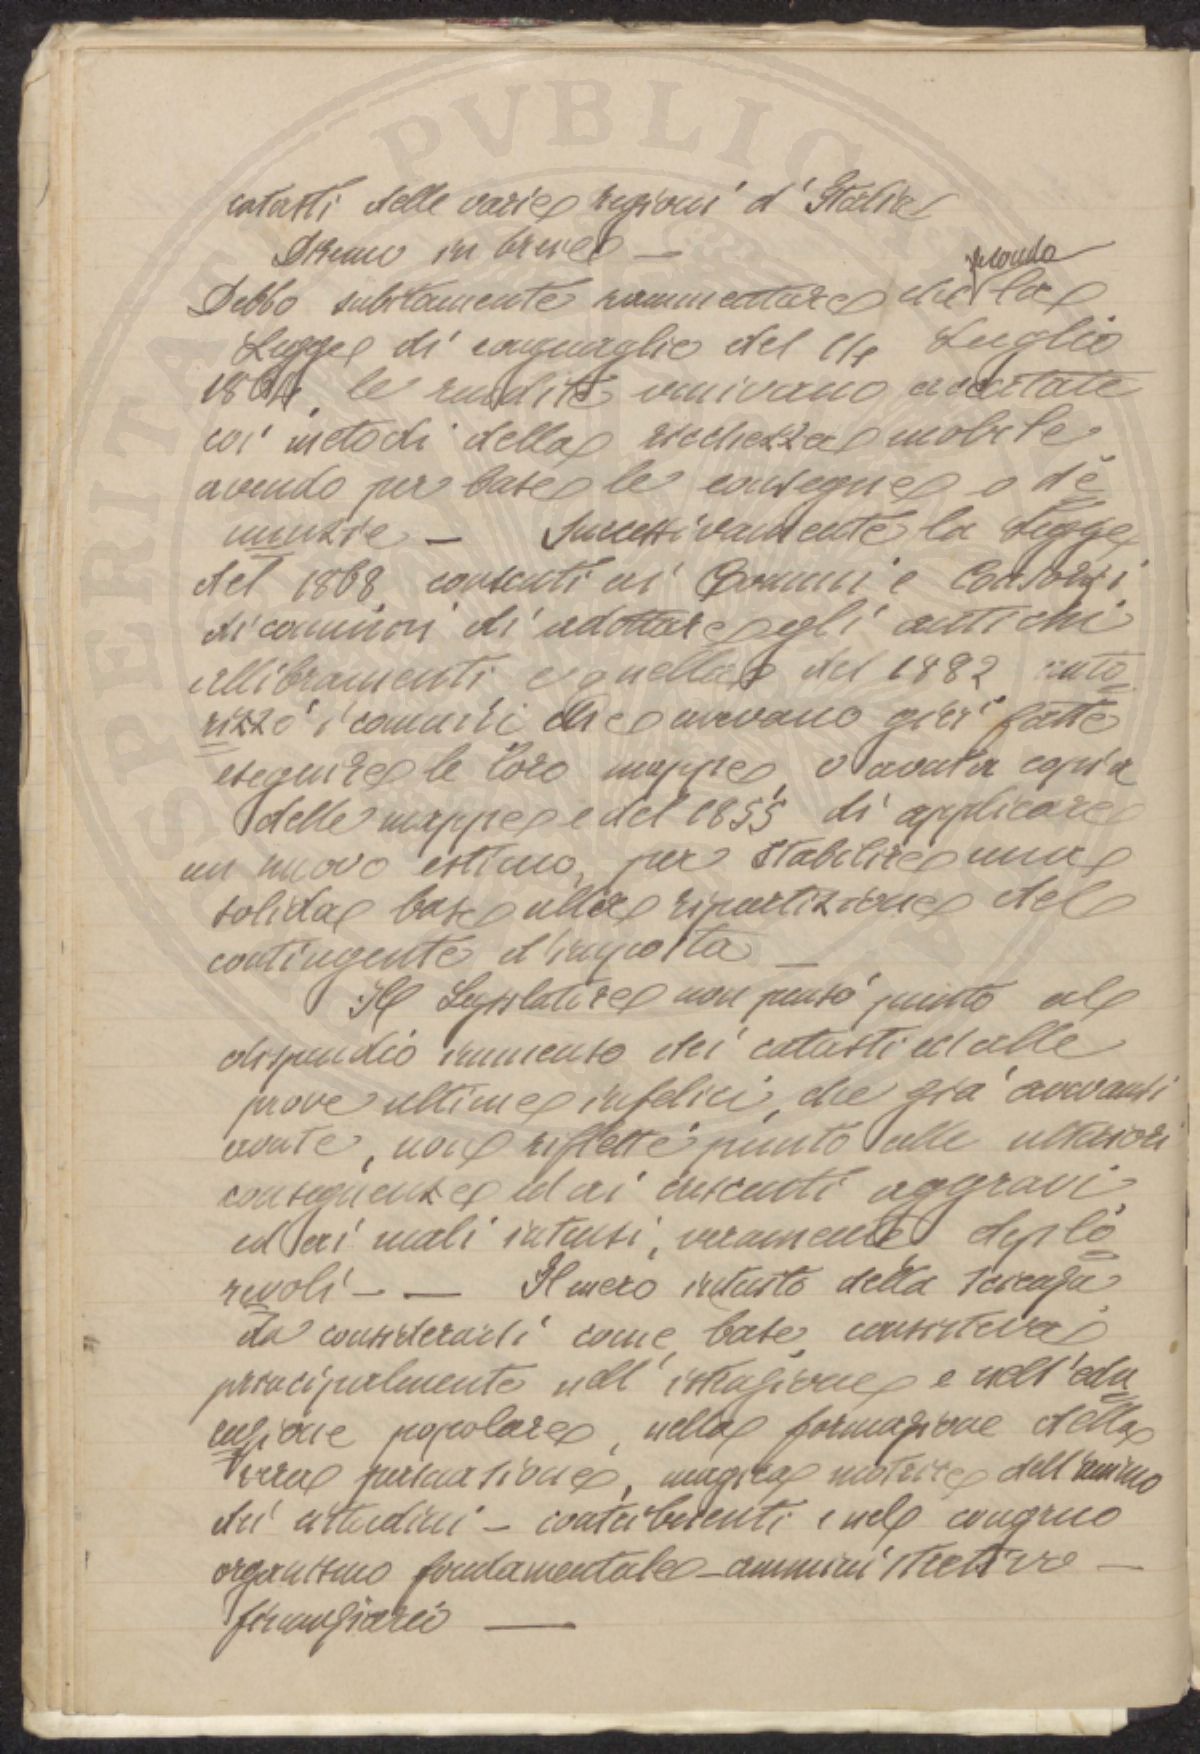 catasti delle varie regioni d'Italia
Diremo in breve —
secondo
Debbo subitamente rammentare che la
Legge di conguaglio del 14 Luglio
1864, le rendite venivano accertate
coi metodi della ricchezza mobile
avendo per base le consegne o de
nunzie — Successivamente la Legge
del 1868 consentì ai Comuni e Consorzi
di comuni di adottare gli antichi
allibramenti e quella del 1882 auto
rizzò i comuni che avevano già fatte
eseguire le loro mappe o avuta copia
delle mappe e del 1855 di applicare
un nuovo estimo, per stabilire una
solida base alla ripartizione del
contingente d'imposta —
Il Legislatore non pensò punto al
dispendio immenso dei catasti ed alle
prove ultime infelici, che già avevansi
avute, non riflettè punto alle ulteriori
conseguenze ed ai crescenti aggravi
ed ai mali intensi, veramente deplo
revoli — — Il mero intento della scienza
da considerarsi come base consisteva
principalmente nell'istruzione e nell'edu
cazione popolare, nella formazione della
vera persuasione, magica motrice dell'animo
dei cittadini — contribuenti e nel congruo
organismo fondamentale — amministrativo —
finanziario —
PVBLIC
SPERITAS